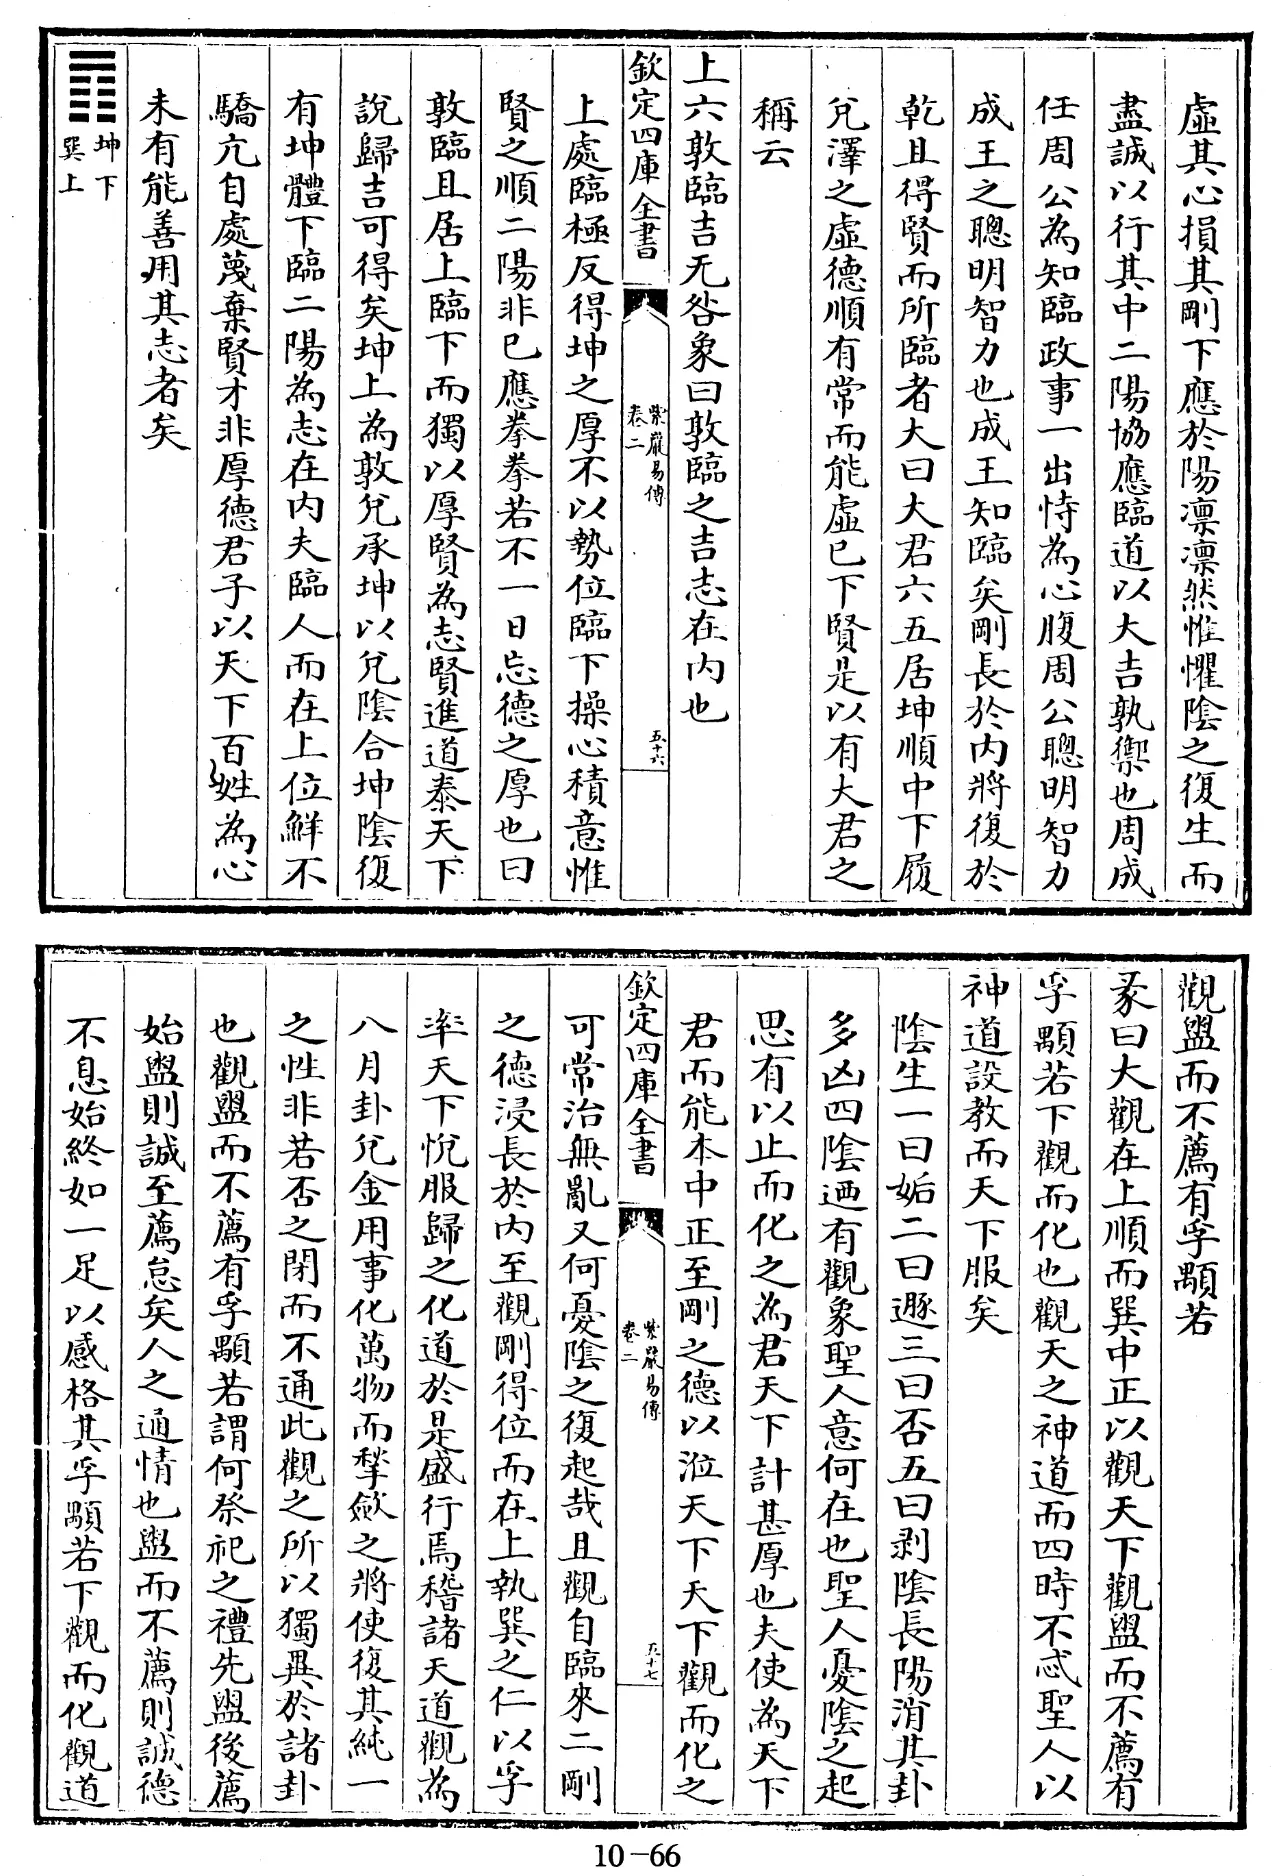 虛其心損其剛下應於陽凛凛然惟懼陰之復生而
盡誠以行其中二陽協應臨道以大吉孰禦也周成
任周公為知臨政事一出恃為心腹周公聰明智力
成王之聰明智力也成王知臨矣剛長於内將復於
乾且得賢而所臨者大曰大君六五居坤順中下履
兌澤之虛德順有常而能虛已下賢是以有大君之
稱云
上六敦臨吉无咎象曰敦臨之吉志在内也
欽定四庫全書
紫巖易傳
卷二
五十六
上處臨極反得坤之厚不以勢位臨下操心積意惟
賢之順二陽非已應拳拳若不一日忘德之厚也曰
敦臨且居上臨下而獨以厚賢為志賢進道泰天下
說歸吉可得矣坤上為敦兌承坤以兌陰合坤陰復
有坤體下臨二陽為志在内夫臨人而在上位鮮不
驕亢自處蔑棄賢才非厚德君子以天下百姓為心
未有能善用其志者矣
坤下
巽上
觀盥而不薦有孚顒若
彖曰大觀在上順而巽中正以觀天下觀盥而不薦有
孚顒若下觀而化也觀天之神道而四時不忒聖人以
神道設教而天下服矣
陰生一曰姤二曰遯三曰否五曰剥陰長陽消其卦
多凶四陰迺有觀象聖人意何在也聖人憂陰之起
思有以止而化之為君天下計甚厚也夫使為天下
君而能本中正至剛之德以涖天下天下觀而化之
欽定四庫全書
紫巖易傳
卷二
五十七
可常治無亂又何憂陰之復起哉且觀自臨來二剛
之德浸長於内至觀剛得位而在上執巽之仁以孚
率天下悅服歸之化道於是盛行焉稽諸天道觀為
八月卦兌金用事化萬物而揫斂之將使復其純一
之性非若否之閉而不通此觀之所以獨異於諸卦
也觀盥而不薦有孚顒若謂何祭祀之禮先盥後薦
始盥則誠至薦怠矣人之通情也盥而不薦則誠德
不息始終如一足以感格其孚顒若下觀而化觀道
10-66